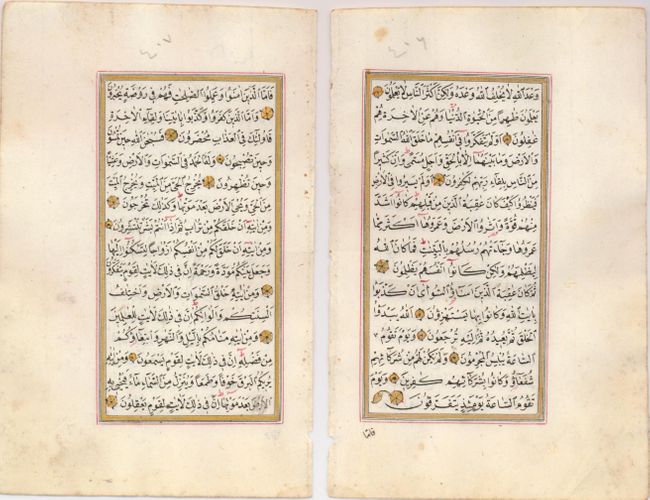 ٤٠٦
وَعْدَ اللهِ لَا يُخْلِفُ اللهُ وَعْدَهُ وَلٰكِنَّ اَكْثَرَ النَّاسِ لَا يَعْلَمُونَ
يَعْلَمُونَ ظٰهِرًا مِنَ الْحَيٰوةِ الدُّنْيَا وَهُمْ عَنِ الْاٰخِرَةِ هُمْ
غٰفِلُونَ اَوَلَمْ يَتَفَكَّرُوا فِى اَنْفُسِهِمْ مَا خَلَقَ اللهُ السَّمٰوَاتِ
وَالْاَرْضَ وَمَا بَيْنَهُمَا اِلَّا بِالْحَقِّ وَاَجَلٍ مُسَمًّى وَاِنَّ كَثِيرًا
مِنَ النَّاسِ بِلِقَاءِ رَبِّهِمْ لَكٰفِرُونَ اَوَلَمْ يَسِيرُوا فِى الْاَرْضِ
فَيَنْظُرُوا كَيْفَ كَانَ عٰقِبَةُ الَّذِينَ مِنْ قَبْلِهِمْ كَانُوا اَشَدَّ
مِنْهُمْ قُوَّةً وَاَثَارُوا الْاَرْضَ وَعَمَرُوهَا اَكْثَرَ مِمَّا
عَمَرُوهَا وَجَاءَتْهُمْ رُسُلُهُمْ بِالْبَيِّنٰتِ فَمَا كَانَ اللهُ
لِيَظْلِمَهُمْ وَلٰكِنْ كَانُوا اَنْفُسَهُمْ يَظْلِمُونَ
ثُمَّ كَانَ عٰقِبَةَ الَّذِينَ اَسَاؤُا السُّوأٰى اَنْ كَذَّبُوا
بِاٰيَاتِ اللهِ وَكَانُوا بِهَا يَسْتَهْزِؤُنَ اَللهُ يَبْدَؤُا
الْخَلْقَ ثُمَّ يُعِيدُهُ ثُمَّ اِلَيْهِ تُرْجَعُونَ وَيَوْمَ تَقُومُ
السَّاعَةُ يُبْلِسُ الْمُجْرِمُونَ وَلَمْ يَكُنْ لَهُمْ مِنْ شُرَكَائِهِمْ
شُفَعٰؤُا وَكَانُوا بِشُرَكَائِهِمْ كٰفِرِينَ وَيَوْمَ
تَقُومُ السَّاعَةُ يَوْمَئِذٍ يَتَفَرَّقُونَ
فَاَمَّا
٤٠٧
فَاَمَّا الَّذِينَ اٰمَنُوا وَعَمِلُوا الصّٰلِحٰتِ فَهُمْ فِى رَوْضَةٍ يُحْبَرُونَ
وَاَمَّا الَّذِينَ كَفَرُوا وَكَذَّبُوا بِاٰيَاتِنَا وَلِقَاءِ الْاٰخِرَةِ
فَاُولٰئِكَ فِى الْعَذَابِ مُحْضَرُونَ فَسُبْحٰنَ اللهِ حِينَ تُمْسُونَ
وَحِينَ تُصْبِحُونَ وَلَهُ الْحَمْدُ فِى السَّمٰوَاتِ وَالْاَرْضِ وَعَشِيًّا
وَحِينَ تُظْهِرُونَ يُخْرِجُ الْحَىَّ مِنَ الْمَيِّتِ وَيُخْرِجُ الْمَيِّتَ
مِنَ الْحَىِّ وَيُحْىِ الْاَرْضَ بَعْدَ مَوْتِهَا وَكَذٰلِكَ تُخْرَجُونَ
وَمِنْ اٰيَاتِهِ اَنْ خَلَقَكُمْ مِنْ تُرَابٍ ثُمَّ اِذَا اَنْتُمْ بَشَرٌ تَنْتَشِرُونَ
وَمِنْ اٰيَاتِهِ اَنْ خَلَقَ لَكُمْ مِنْ اَنْفُسِكُمْ اَزْوَاجًا لِتَسْكُنُوا اِلَيْهَا
وَجَعَلَ بَيْنَكُمْ مَوَدَّةً وَرَحْمَةً اِنَّ فِى ذٰلِكَ لَاٰيَاتٍ لِقَوْمٍ يَتَفَكَّرُونَ
وَمِنْ اٰيَاتِهِ خَلْقُ السَّمٰوَاتِ وَالْاَرْضِ وَاخْتِلَافُ
اَلْسِنَتِكُمْ وَاَلْوَانِكُمْ اِنَّ فِى ذٰلِكَ لَاٰيَاتٍ لِلْعٰلِمِينَ
وَمِنْ اٰيَاتِهِ مَنَامُكُمْ بِالَّيْلِ وَالنَّهَارِ وَابْتِغَاؤُكُمْ
مِنْ فَضْلِهِ اِنَّ فِى ذٰلِكَ لَاٰيَاتٍ لِقَوْمٍ يَسْمَعُونَ وَمِنْ اٰيَاتِهِ
يُرِيكُمُ الْبَرْقَ خَوْفًا وَطَمَعًا وَيُنَزِّلُ مِنَ السَّمَاءِ مَاءً فَيُحْىِ بِهِ
الْاَرْضَ بَعْدَ مَوْتِهَا اِنَّ فِى ذٰلِكَ لَاٰيَاتٍ لِقَوْمٍ يَعْقِلُونَ